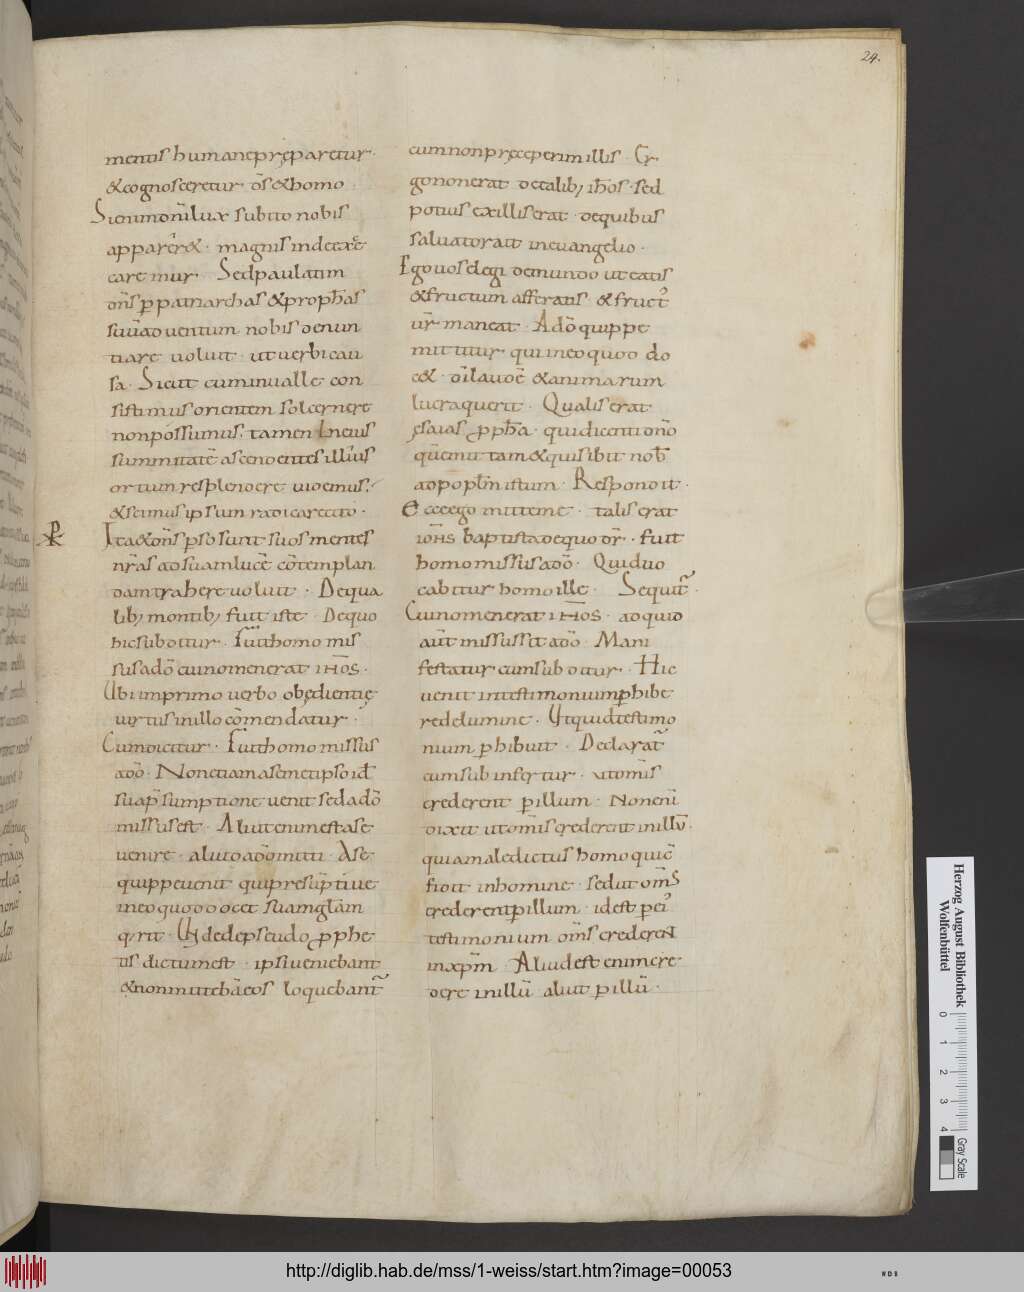 24.
mentis humanepręparetur·
&cognosceretur· ds̄&homo
Sienimdn̄ilux subito nobis
appareret& · magnis indecxc̄
care mur· Sedpaulatim
om̄s p̱patriarchas &proph̄as
suūaduentum nobis denun
tiare uoluit · ut uerbi cau
sa · Sicut cuminualle con
sistimus orientem solcernere
nonpossumus, tamen Ineius
summitatē ascendentes illius
ortum resplendere uidemus;
&scimus ipsum radicarecito ·
Ita&om̄s p̱sb̄ sunt suos mentes
nr̄as adsuamlucē cōtemplan
damtrahere uoluit · Dequa
lib; montib; fuit iste · Dequo
hicsubditur· Fuithomo mis
sus adō cuinomenerat IHOS̄ ·
Ubiimprimo uerbo obędientię
uirtus inillo cōmendatur ·
Cumdicitur · Fuithomo missus
adō · Nonetiam asemetipso id̄
suap̄ sumptione uenit sed adō
missus est · Aliut enim est ase
uenire · aliut adōmitti · Ase
quippe uenit qui presūptiue
ineo quod docet suamglām
q̨rit · Un̄ de depseudo p̱phe
tis dictum est · ipsi ueniebant
&nonmittebāt eos loquebant̄
cumnonpręceperim illis · Er
gononerat detalib; ih̄os · sed
potius exillis erat · dequibus
saluator ait ineuangelio ·
Ego uos elegi demundo ut eatis
&fructum afferatis · &fruct'
ur̄ maneat · Adō quippe
mittitur qui ineo quod do
c& · dīlauoē &animarum
lucra querit · Qualis erat
esaias p̱ph̄a · qui dicenti dnō
quē mittam &quis ibit nob̄
adpopl̄m istum · Respondit ·
Ecceego mitte me · talis erat
ioh̄s baptista dequo dr̄ · fuit
homo missus adō · Quid uo
cabitur homo ille · Sequit̄ ·
Cuinomenerat IHOS̄ · ad quid
aūt missus sit adō · Mani
festatur cum subditur · Hic
uenit intestimonium p̱hibe
redelumine · Utquid testimo
nium p̱hibuit · Declarat̄
cum sub infertur · utom̄is
crederent p̱illum · Nonenī
dixit utom̄is crederent inillū ·
quia maledictus homo quicō̄
fidit inhomine · sed ut om̄s
crederent p̱illum · idest p̱ei'
testimonium om̄s crederent
inxp̄m · Aliud est enim cre
dere inillū aliut p̱illū ·
Herzog August Bibliothek
Wolfenbüttel
0 1 2 3 4
Gray Scale
http://diglib.hab.de/mss/1-weiss/start.htm?image=00053